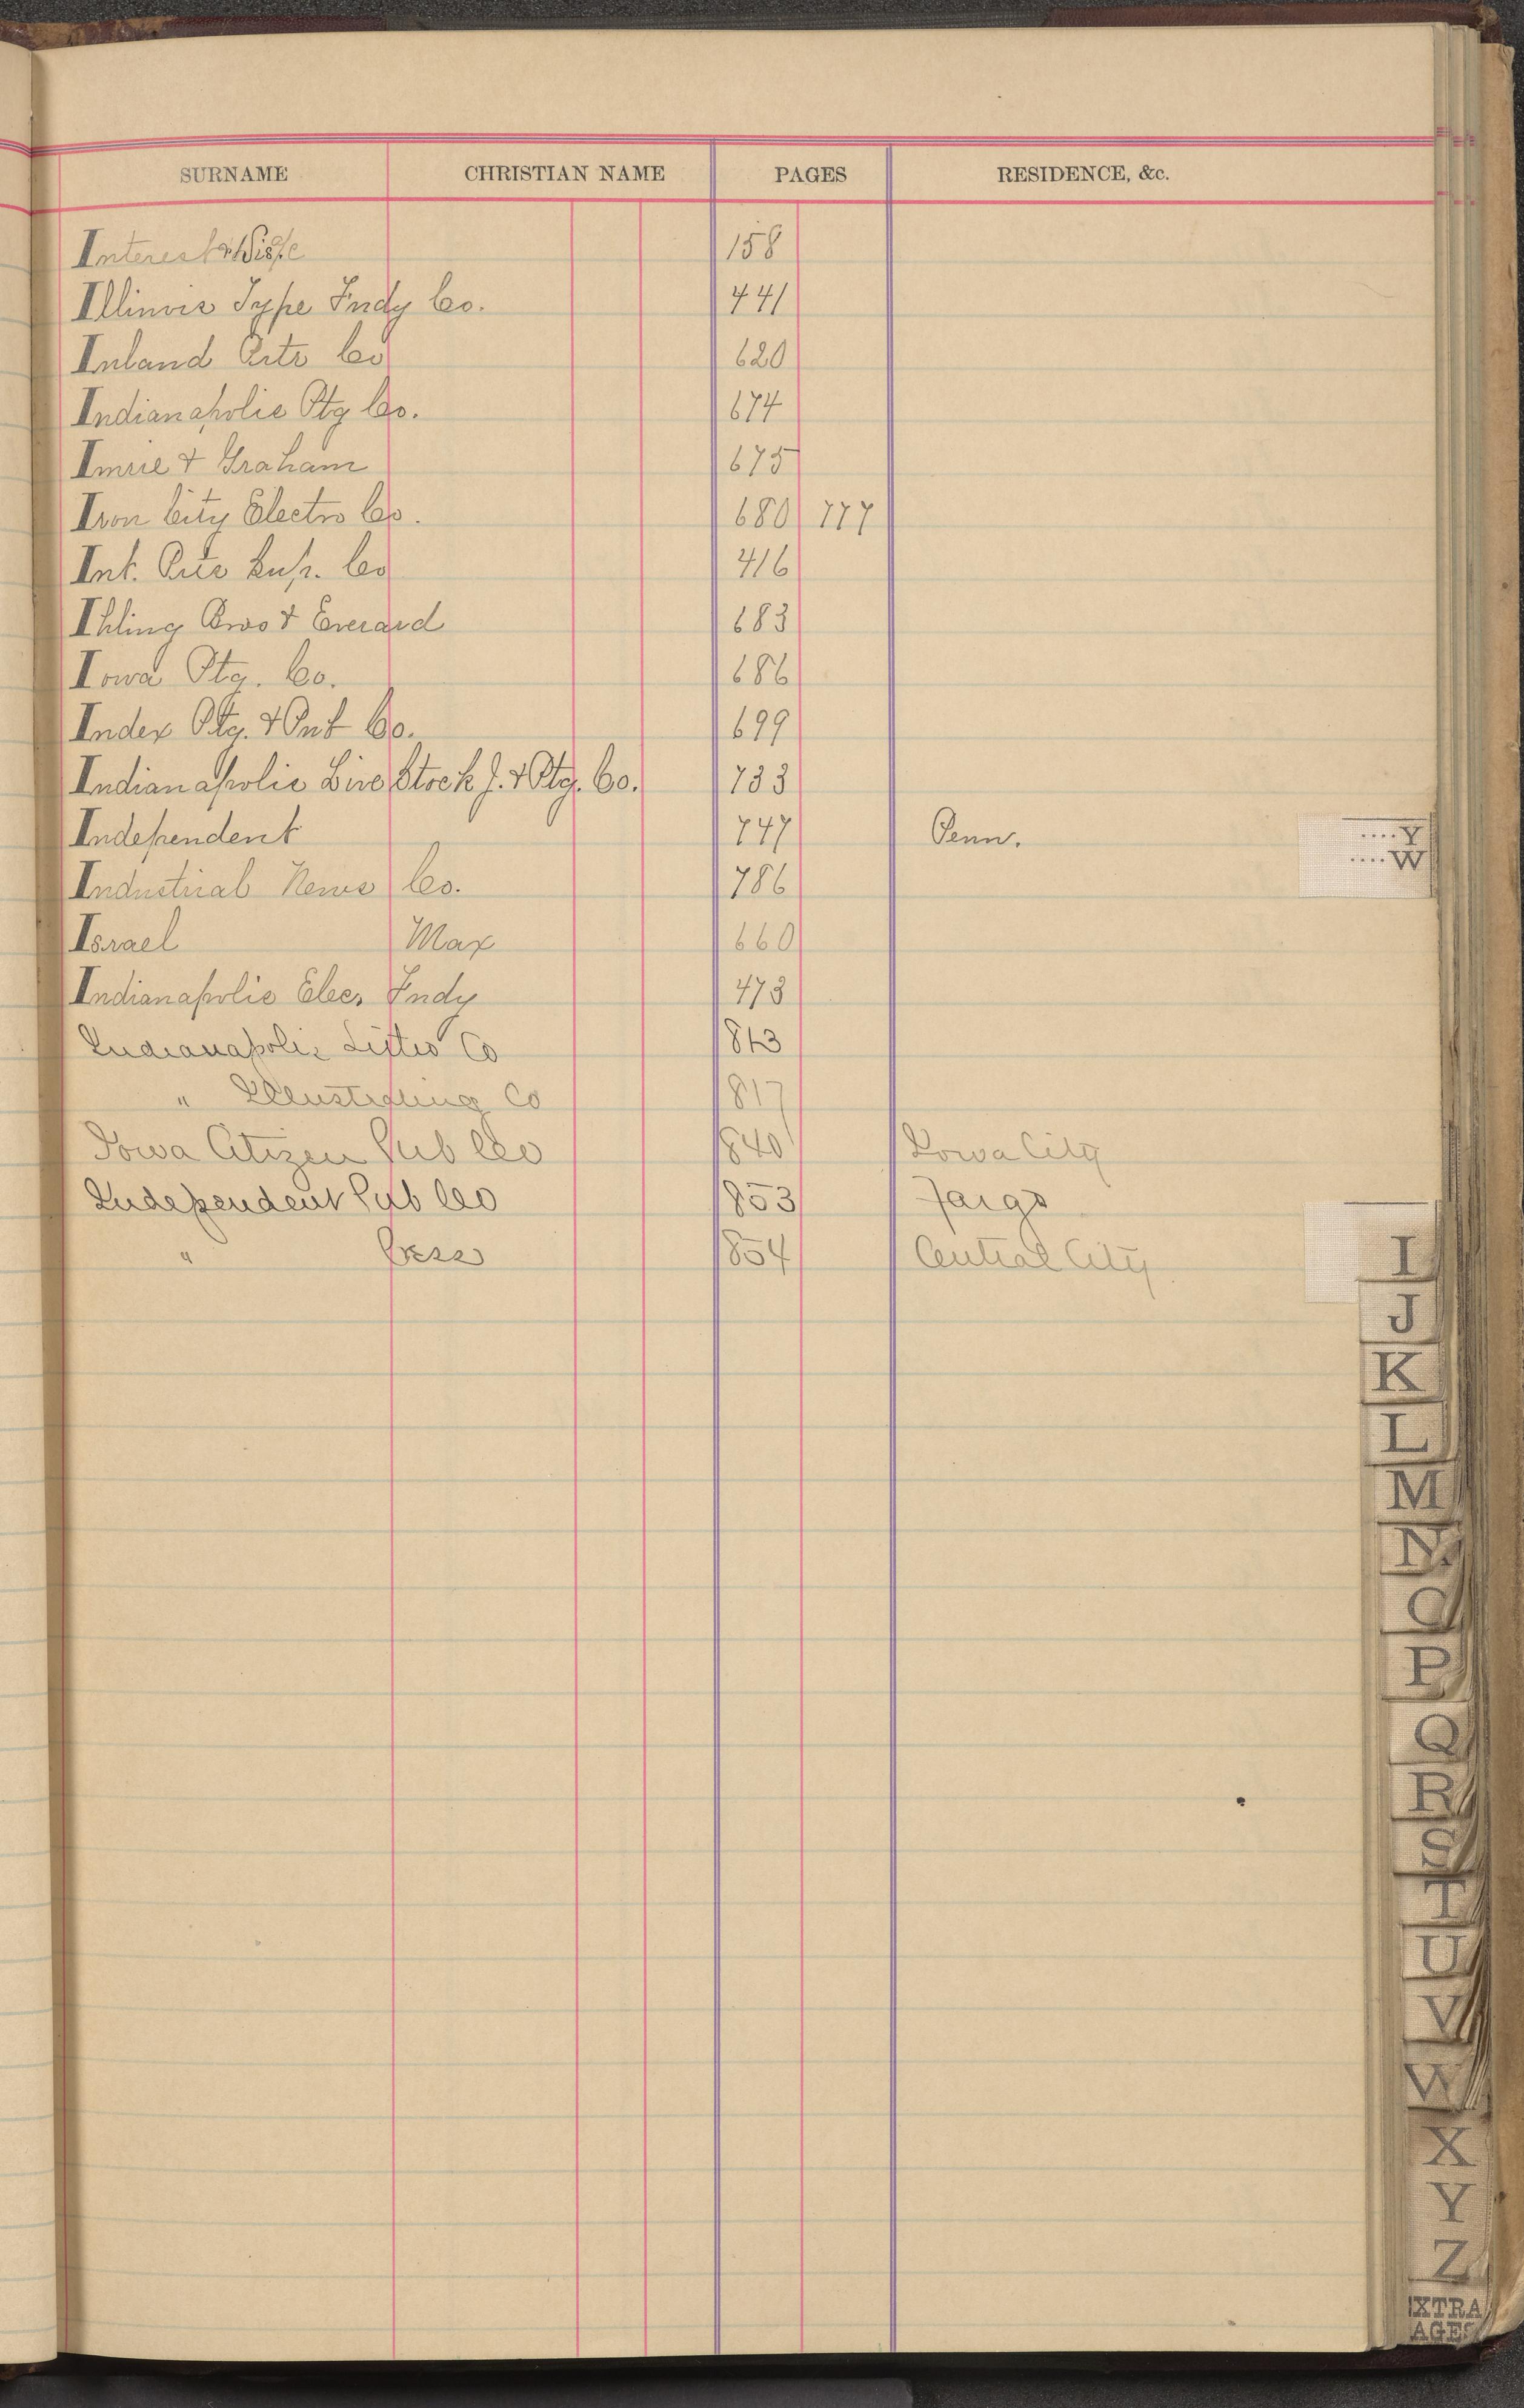 SURNAME CHRISTIAN NAME PAGES RESIDENCE, &c.
Interest & Disc 158
Illinois Type Fndy Co. 441
Inland Co 620
Indianapolis Ptg Co. 674
Imrie & Graham 675
Iron City Electro Co. 680 777
Int. Sup. Co 416
Ihling Bros & Everard 683
Iowa Ptg. Co. 686
Index Ptg. & Co. 699
Indianapolis Live Stock J. & Ptg. Co. 733
Independent 747 Penn.
....Y
....W
Industrial News Co. 786
Israel Max 660
Indianapolis Elec. Fndy 473
Indianapolis Co
" Illustrating Co 817
Iowa Citizen Pub Co 840 Iowa City
Independent Pub Co 853 Fargo
" Press 854 Central City
I
J
K
L
M
N
O
P
Q
R
S
T
U
V
W
X
Y
Z